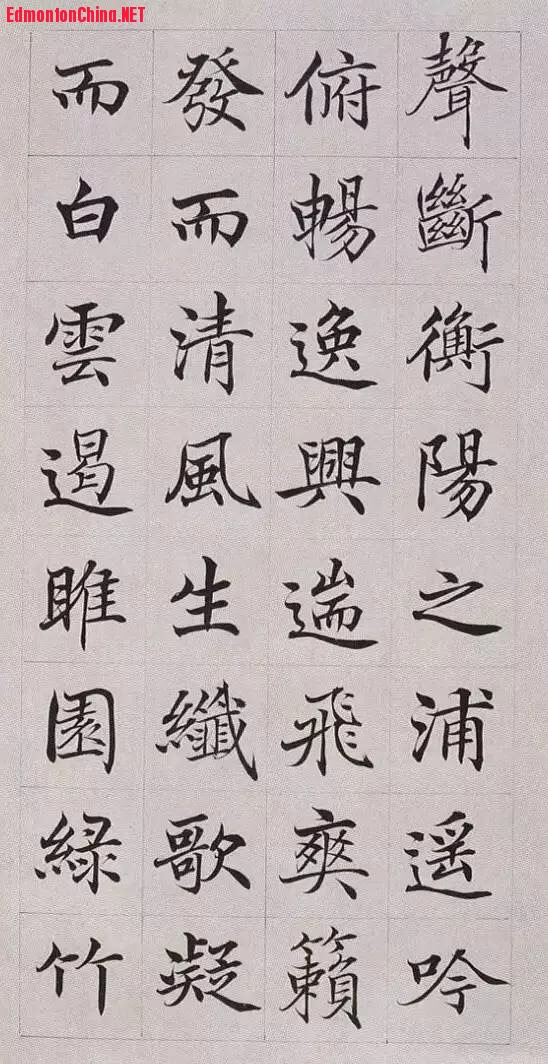 EdmontonChina.NET
聲斷衡陽之浦遥吟
俯暢逸興遄飛爽籟
發而清風生纖歌凝
而白雲遏睢園緑竹